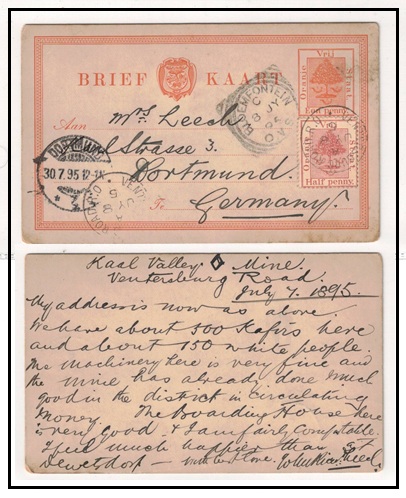 BRIEF KAART
Vrij
Oranje
Staat
Half penny.
Aan
Mrs Leech
Strasse 3.
Dortmund.
Te
Germany.
BLOEMFONTEIN
DORTMUND
30.7.95 12-1N
Kaal Valley Mine.
Ventersburg Road.
July 7. 1895.
My address is now as above.
We have about 500 Kafirs here
and about 150 white people.
The Machinery here is very fine and
the mine has already done much
good in the district in circulating
Money. The Boarding House here
is very good & I am fairly comfortable.
I feel much happier than at
Dewetsdorp – with love.